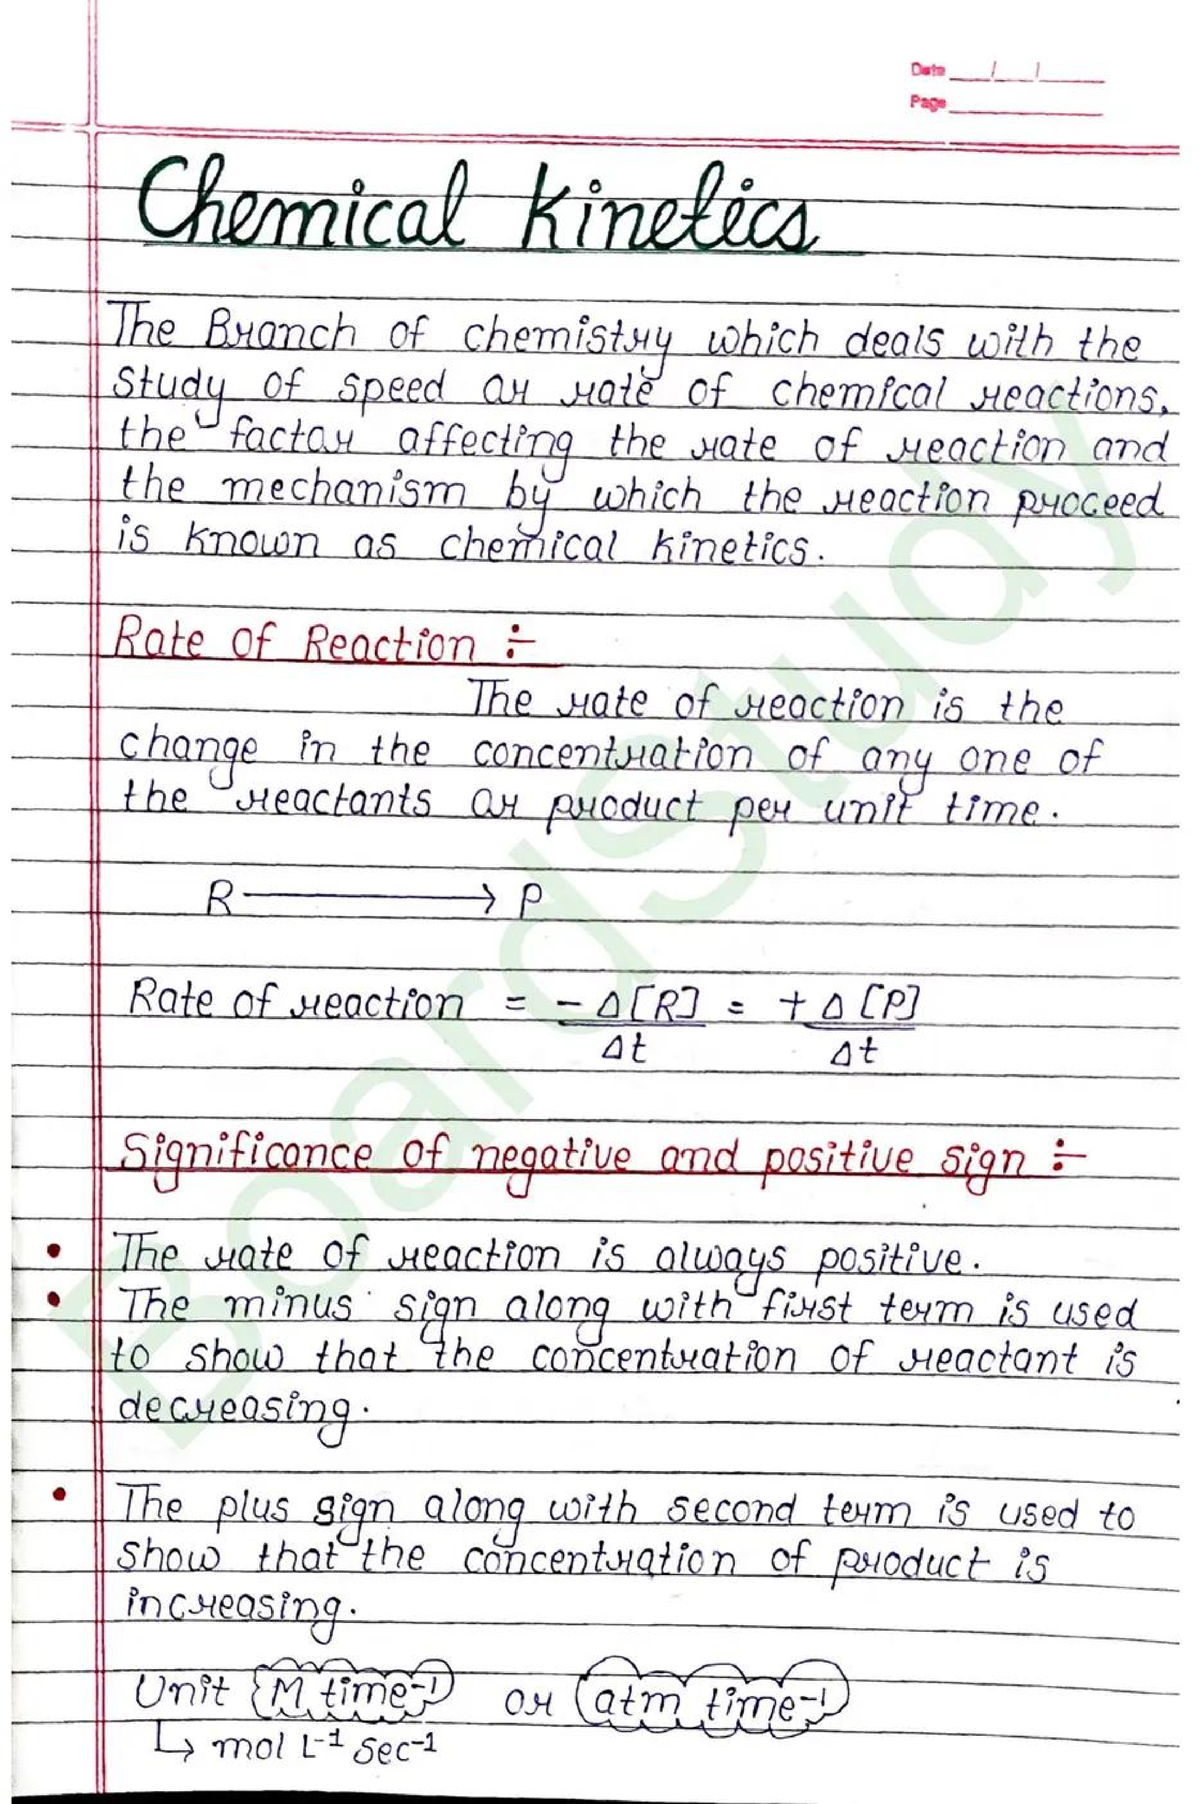 Date __/__/____
Page ________
Chemical Kinetics
The Branch of chemistry which deals with the
study of speed or rate of chemical reactions,
the factor affecting the rate of reaction and
the mechanism by which the reaction proceed
is known as chemical kinetics.
Rate of Reaction :-
The rate of reaction is the
change in the concentration of any one of
the reactants or product per unit time.
R ⟶ P
Rate of reaction = -Δ[R]/Δt = +Δ[P]/Δt
Significance of negative and positive sign :-
• The rate of reaction is always positive.
• The minus sign along with first term is used
to show that the concentration of reactant is
decreasing.
• The plus sign along with second term is used to
show that the concentration of product is
increasing.
Unit {M time⁻¹} or (atm time⁻¹)
↳ mol L⁻¹ sec⁻¹
BoardStudy